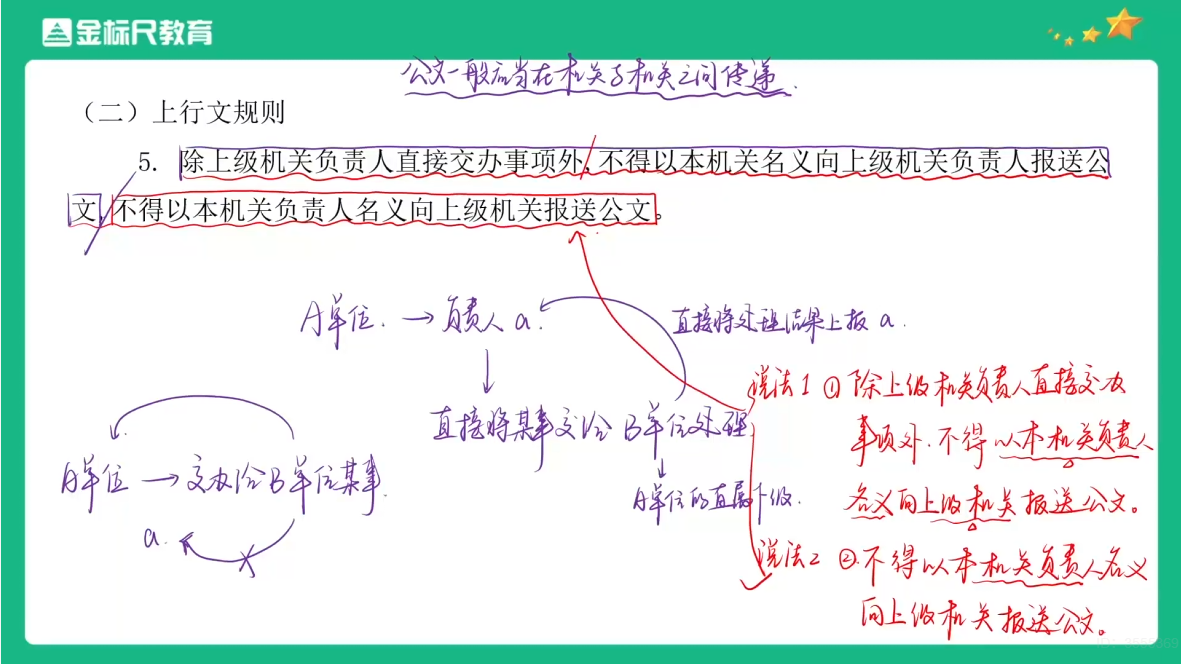 金标尺教育
公文一般应当在机关与机关之间传递.
（二）上行文规则
5. 除上级机关负责人直接交办事项外,不得以本机关名义向上级机关负责人报送公
文,不得以本机关负责人名义向上级机关报送公文。
A单位. → 负责人 a.
直接将处理结果上报 a.
直接将某事交给 B单位处理.
A单位的直属下级.
A单位 → 交办给B单位某事.
a.
说法1 ① 除上级机关负责人直接交办
事项外.不得以本机关负责人
名义向上级机关报送公文。
说法2 ②.不得以本机关负责人名义
向上级机关报送公文。